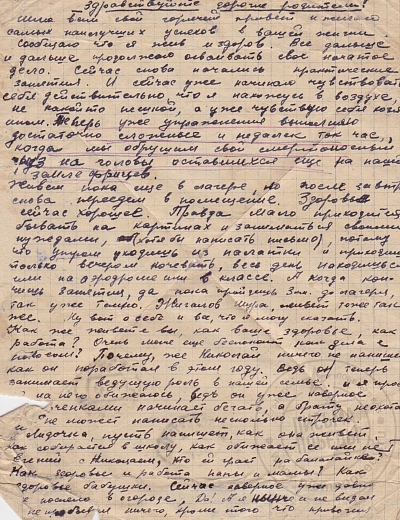 Здравствуйте дорогие родители!
Шлю Вам свой горячий привет и желаю
самых наилучших успехов в вашей жизни
Сообщаю что я жив и здоров. Все дальше
и дальше продолжаю осваивать свое начатое
дело. Сейчас снова начались практические
занятия. И сейчас уже начинаю чувствовать
себя действительно, что я нахожусь в воздухе,
не какой то пешкой, а уже чувствую себя
Теперь уже упражнения выполняю
достаточно сложные и недалек тот час,
когда мы обрушим свой смертоносный
груз на головы оставшихся еще на нашей
земле фрицев.
Живем пока еще в лагере, но после завтра
снова переедем в помещение. Здоровье
сейчас хорошее. Правда мало приходится
бывать на и заниматься своими
нуждами, (хотя бы написать письмо), потому
что утром уходишь из палатки и приходишь
только вечером ночевать, весь день находишься
или на аэродроме или в классе. А когда кон-
чишь занятия, да пока придешь до лагеря
так уже темно. Мура, живет тоже так
же. Ну вот о себе и все, что я могу сказать.
Как же живете вы, как ваше здоровье, как
работа? Очень меня еще беспокоит, как дела с
Почему же Николай ничего не напишет
как он поработал в этом году. Ведь он теперь
занимает ведущую роль в нашей семье. и я прошу
на него обижаюсь, ведь он уже наверное
начинает бегать, а брату неохота
не может написать несколько строчек.
Лидочка, пусть напишет, как она живет
как собирается в школу, как обижает ее или нет
с Николаем, кто играет на балалайке?
Как здоровье и работа папы и мамы? Как
здоровье бабушки. Сейчас наверное уже давно
поспело в огороде, Да! А я нынче и не видал
не пробовал ничего, кроме того что привозил